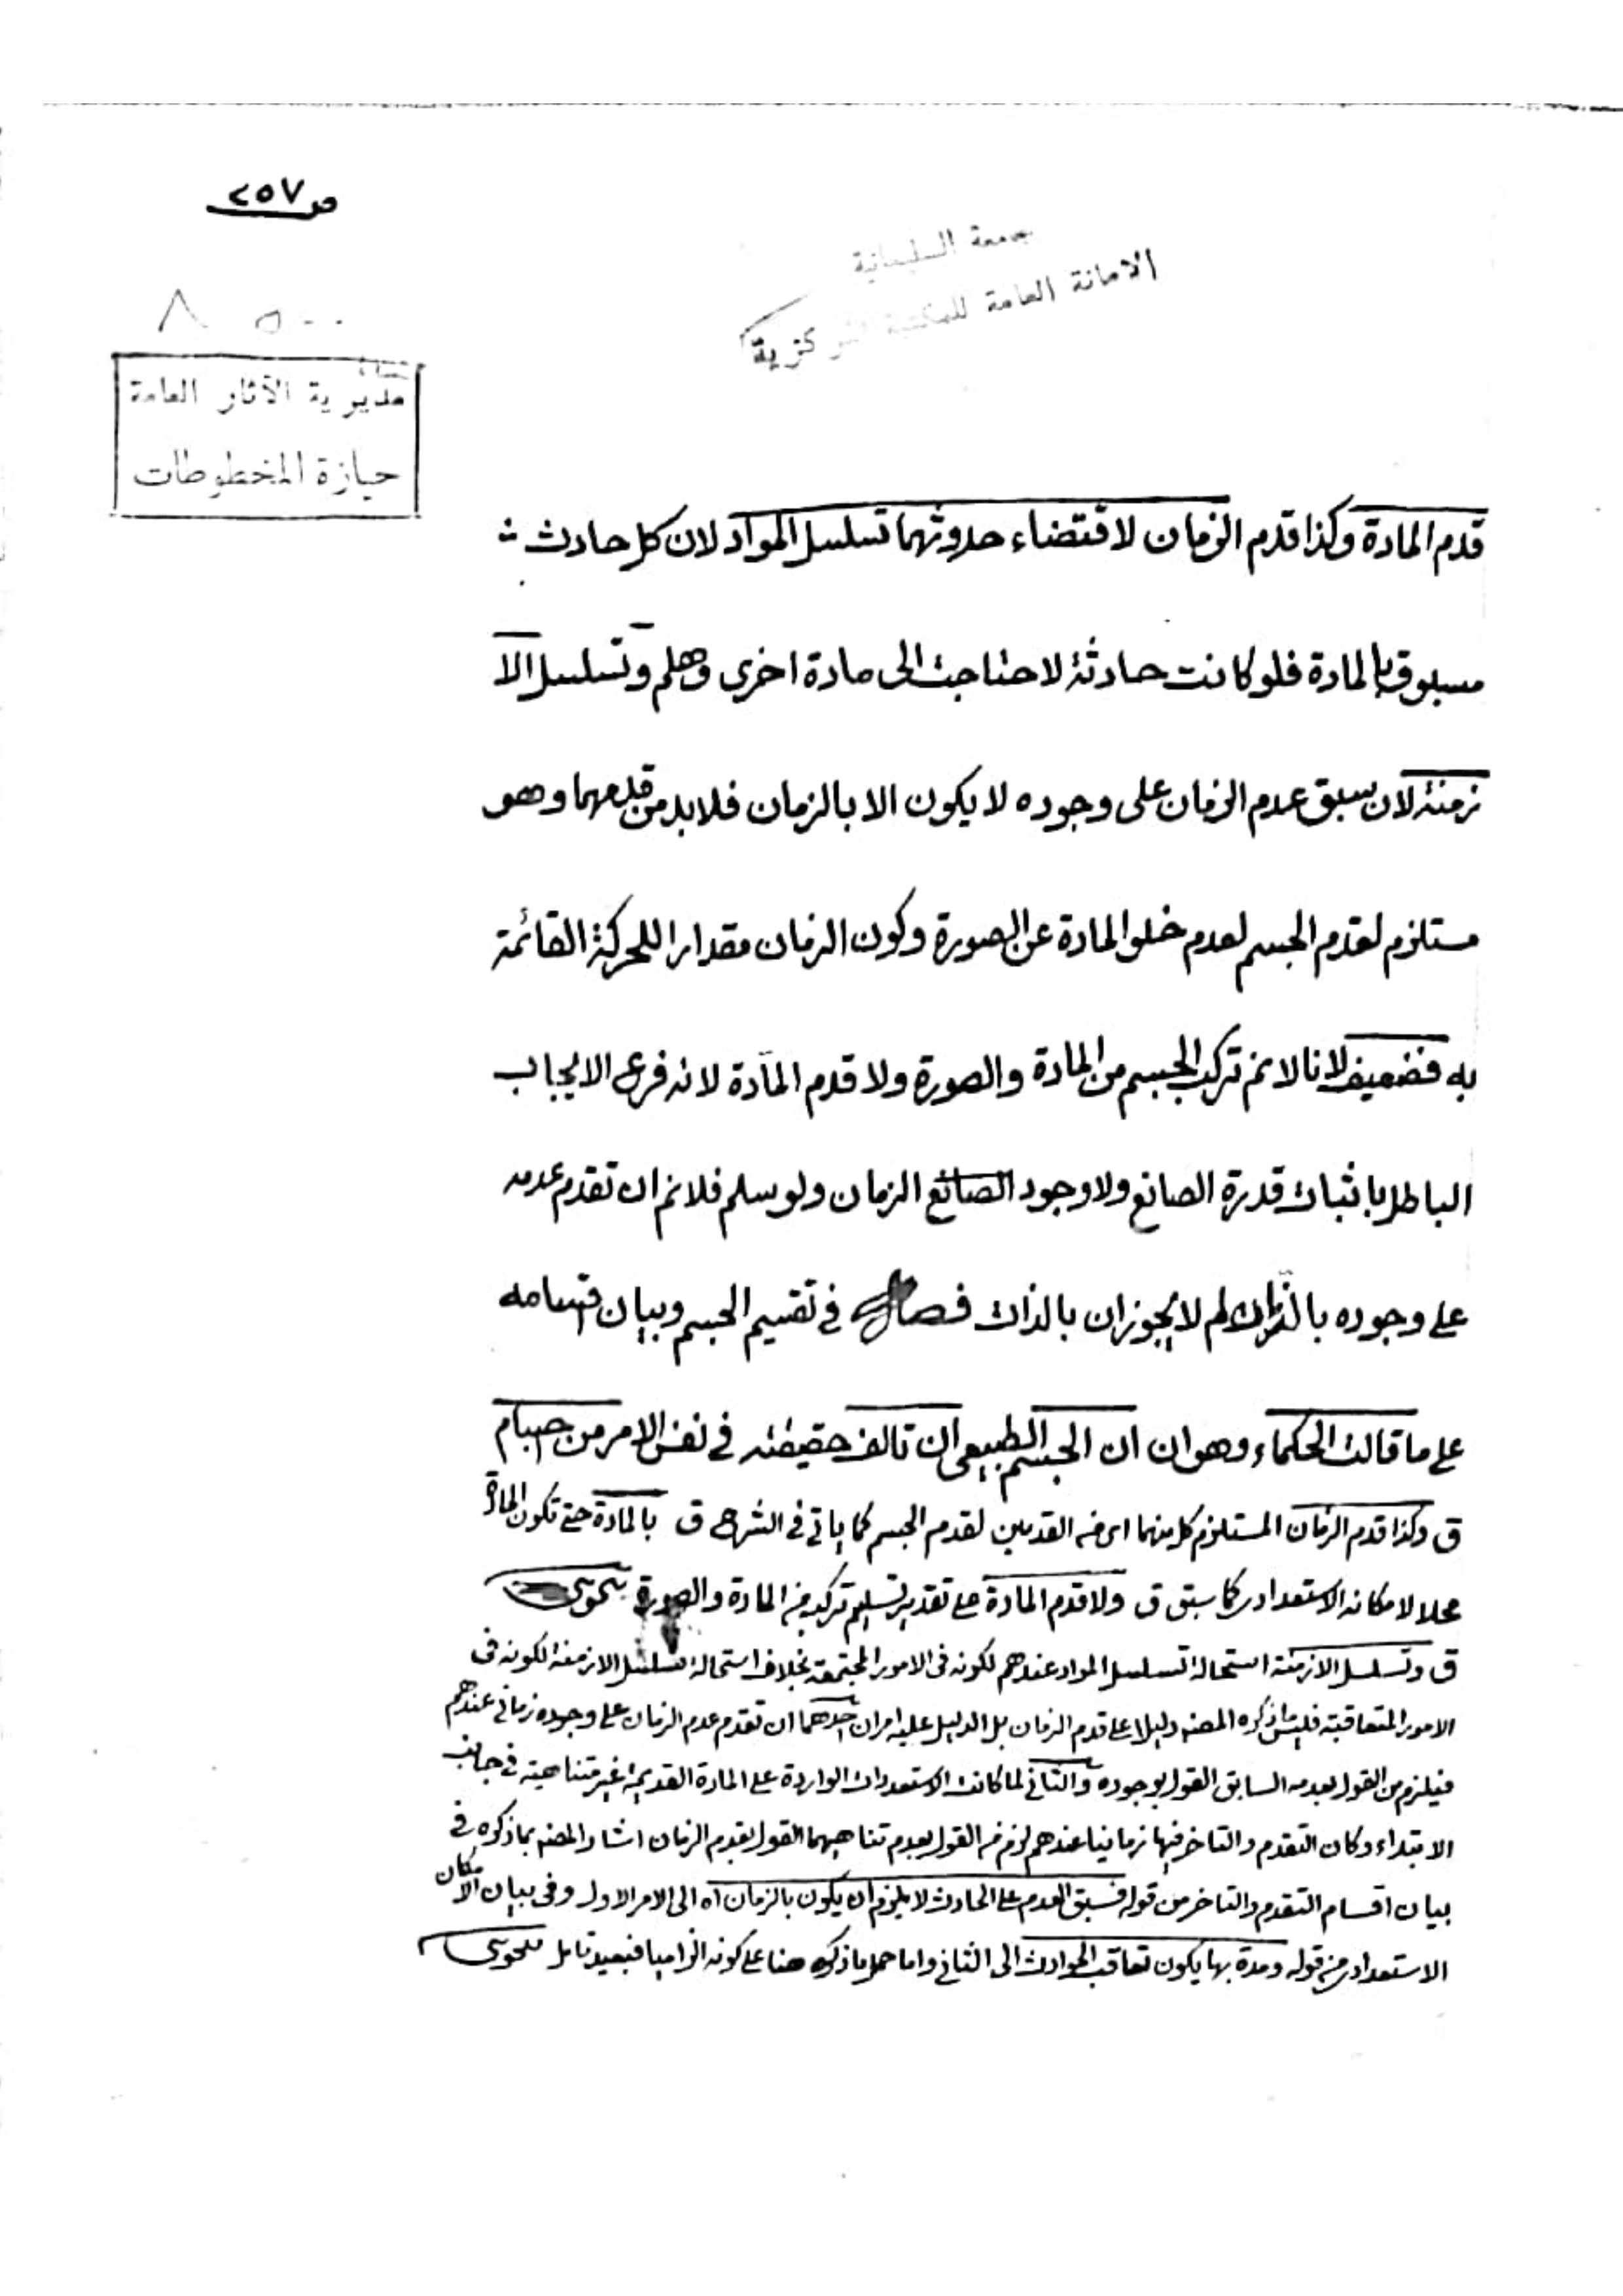 ص ٢٥٧
جامعة السليمانية
الامانة العامة للمكتبة المركزية
٨ ٥٠٠
مديرية الآثار العامة
حيازة المخطوطات
قدم المادة وكذا قدم الزمان لاقتضاء حدوثهما تسلسل المواد لان كل حادث
مسبوق بالمادة فلو كانت حادثة لاحتاجت الى مادة اخرى وهلم وتسلسل الا
زمنة لان سبق عدم الزمان على وجوده لا يكون الا بالزمان فلابد من قدمهما وهو
مستلزم لقدم الجسم لعدم خلو المادة عن الصورة وكون الزمان مقدارا للحركة القائمة
به فضعيف لانا لانم تركب الجسم من المادة والصورة ولا قدم المادة لانه فرع الايجاب
الباطل باثبات قدرة الصانع ولا وجود الصانع الزمان ولو سلم فلانم ان تقدم عدمه
على وجوده بالزمان لم لا يجوز ان بالذات فصل في تقسيم الجسم وبيان اقسامه
على ما قالت الحكماء وهو ان ان الجسم الطبيعي ان تالف حقيقته في نفس الامر من اجسام
ق وكذا قدم الزمان المستلزم كل منهما اى من القدمين لقدم الجسم كما ياتي في الشرح ق بالمادة حتى تكون المادة
محلا لامكانه الاستعدادى كما سبق ق ولا قدم المادة على تقدير تسليم تركبه من المادة والصورة
ق وتسلسل الازمنة استحالة تسلسل المواد عندهم لكونه فى الامور المجتمعة بخلاف استحالة تسلسل الازمنة لكونه ف
الامور المتعاقبة فليس ما ذكره المصنف دليلا على قدم الزمان بل الدليل عليه امران احدهما ان تقدم عدم الزمان على وجوده زماني عندهم
فيلزم من القول بعدمه السابق القول بوجوده والثاني لما كانت الاستعدادات الواردة على المادة القديمة غير متناهية في جانب
الابتداء وكان التقدم والتاخر فيها زمانيا عندهم لزم من القول بعدم تناهيهما القول بقدم الزمان اشار المصنف بما ذكره في
بيان اقسام التقدم والتاخر من قوله فسبق العدم على الحادث لا يلزم ان يكون بالزمان اه الى الامر الاول وفى بيان الامكان
الاستعدادى من قوله ومدة بها يكون تعاقب الحوادث الى الثاني واما حمل ما ذكره هنا على كونه الزاميا فبعيد تامل